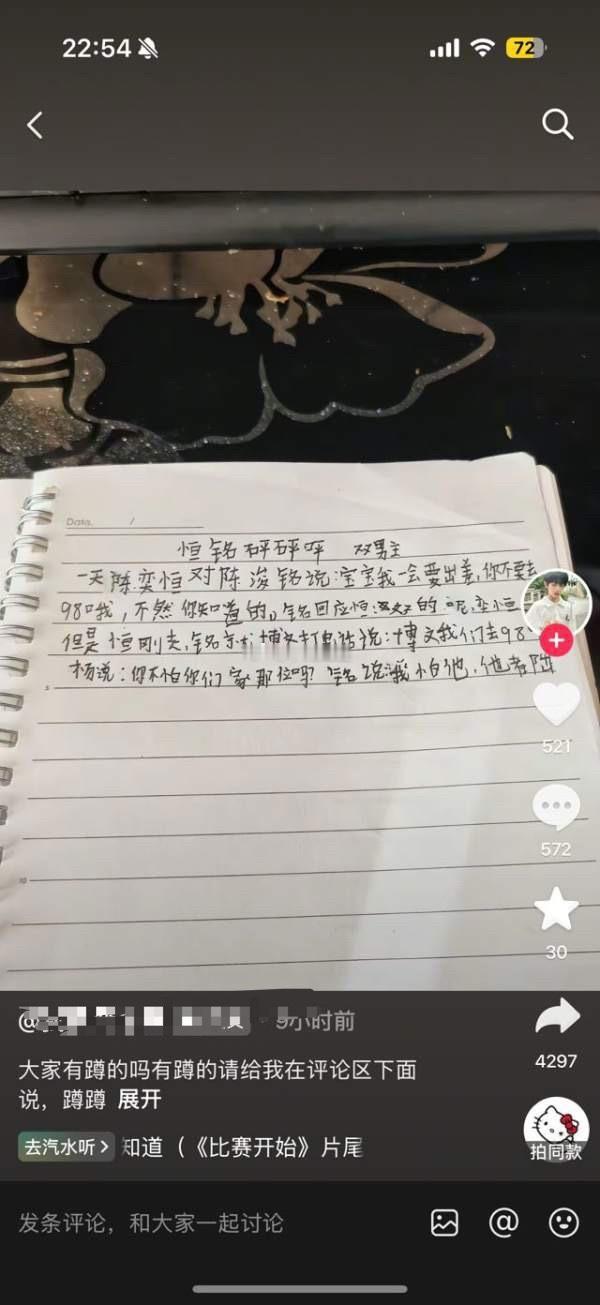 22:54
72
Date. /
恒铭砰砰砰 双男主
一天陈奕恒对陈浚铭说:宝宝我一会要出差,你不要去
98口我,不然你知道的,铭回应恒 的 奕恒
但是恒刚走,铭 博文 说:博文我们去98
杨说:你不怕你们家那位吗?铭说:我怕他,他者阵
521
572
30
4297
@ · 9小时前
大家有蹲的吗有蹲的请给我在评论区下面
说,蹲蹲 展开
去汽水听> 知道(《比赛开始》片尾
拍同款
发条评论,和大家一起讨论
@